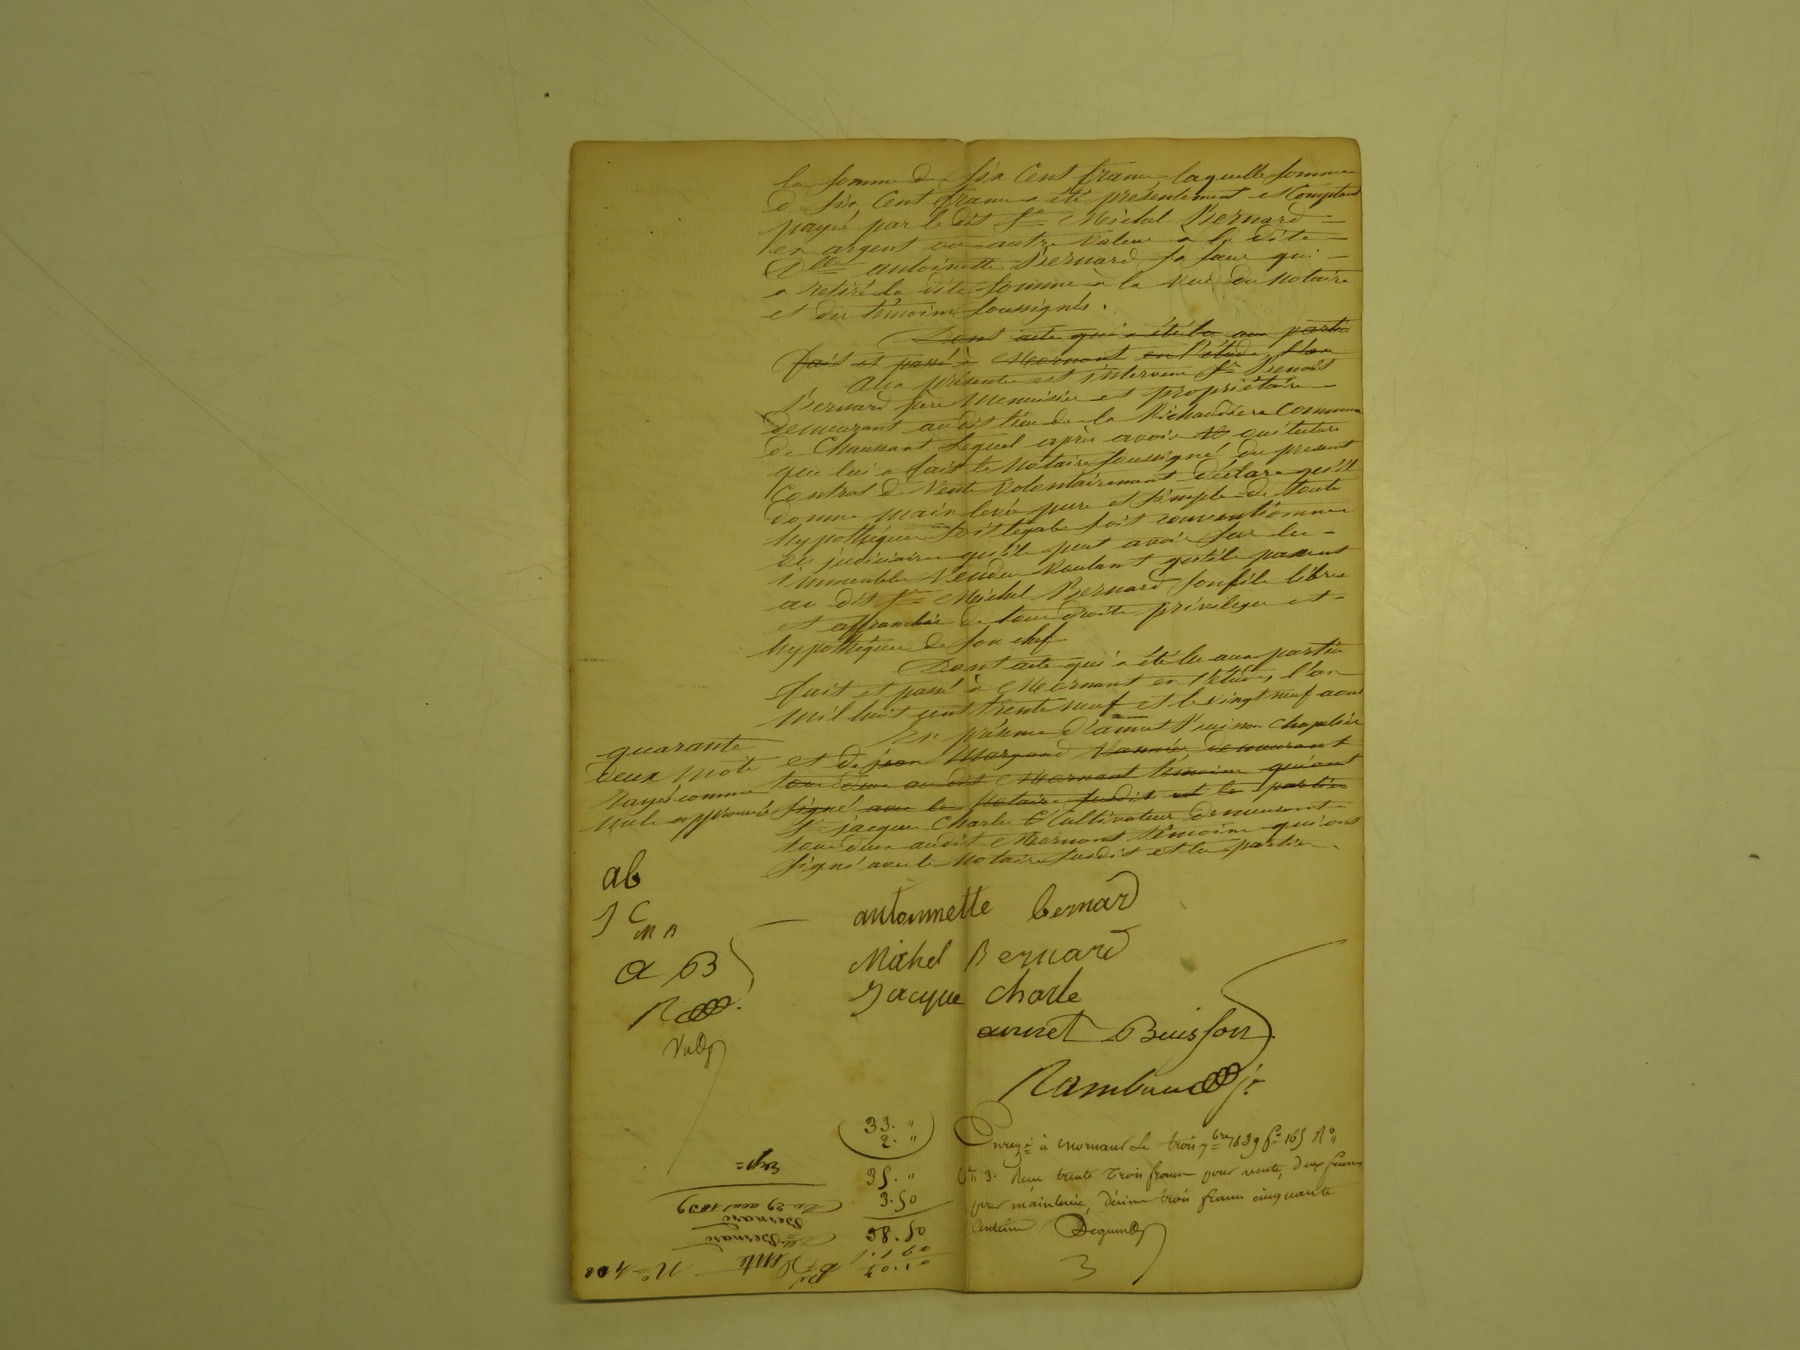 la somme de six cent francs laquelle somme
de six cent francs a été présentement et comptant
payée par le dit Sr Michel Bernard =
en argent ou autre valeur a la dite
Dlle antoinette Bernard sa sœur qui =
a retiré la dite somme à la vue du notaire
et des témoins soussignés.
Dont acte qui a été lu aux parties
fait et passé à Mornant en l'étude, l'an
Alex présentes est intervenu Sr Benoit
Bernard père menuisier et propriétaire
demeurant au dit lieu de la Richaudière commune
de Chaussant lequel après avoir lecture
que lui a fait le notaire soussigné du present
Contrat de vente volontairement déclare qu'il
donne main levée pure et simple de toute
hypothèques soit légale soit conventionnee
et judiciaires qu'il peut avoir sur les =
immeubles vendus voulant qu'ils passent
au dit Sr Michel Bernard son fils libres
et affranchis de tous droits privileges et =
hypothèques de son chef
Dont acte qui a été lu aux parties
fait et passé à Mornant en l'étude, l'an
mil huit cent trente neuf et le vingt neuf aout
En présence d'annet Buisson chapelier
et de jean Margand Vannier demeurant
tous deux au dit Mornant témoins qui ont
signé avec le Notaire susdit et les parties
Sr jacques Charle Cultivateur demeurant
tous deux audit Mornant témoins qui ont
signé avec le Notaire susdit et les parties.
quarante
deux mots
Rayés comme
nuls approuvés
ab
J C
M B
a B
R
antoinnette bernard
Michel Bernard
Jacque charle
annet Buisson
Rambaud jr
33. "
2. "
35. "
3.50
38.50
Enregé à Mornant le trois 7bre 1839 fo 165 Ro
Cn 3. Reçu trente trois francs pour vente, deux francs
pour mainlevée, décime trois francs cinquante
centimes
3
No 402
Vente
Dlle Bernard
Bernard
Du 29 aout 1839